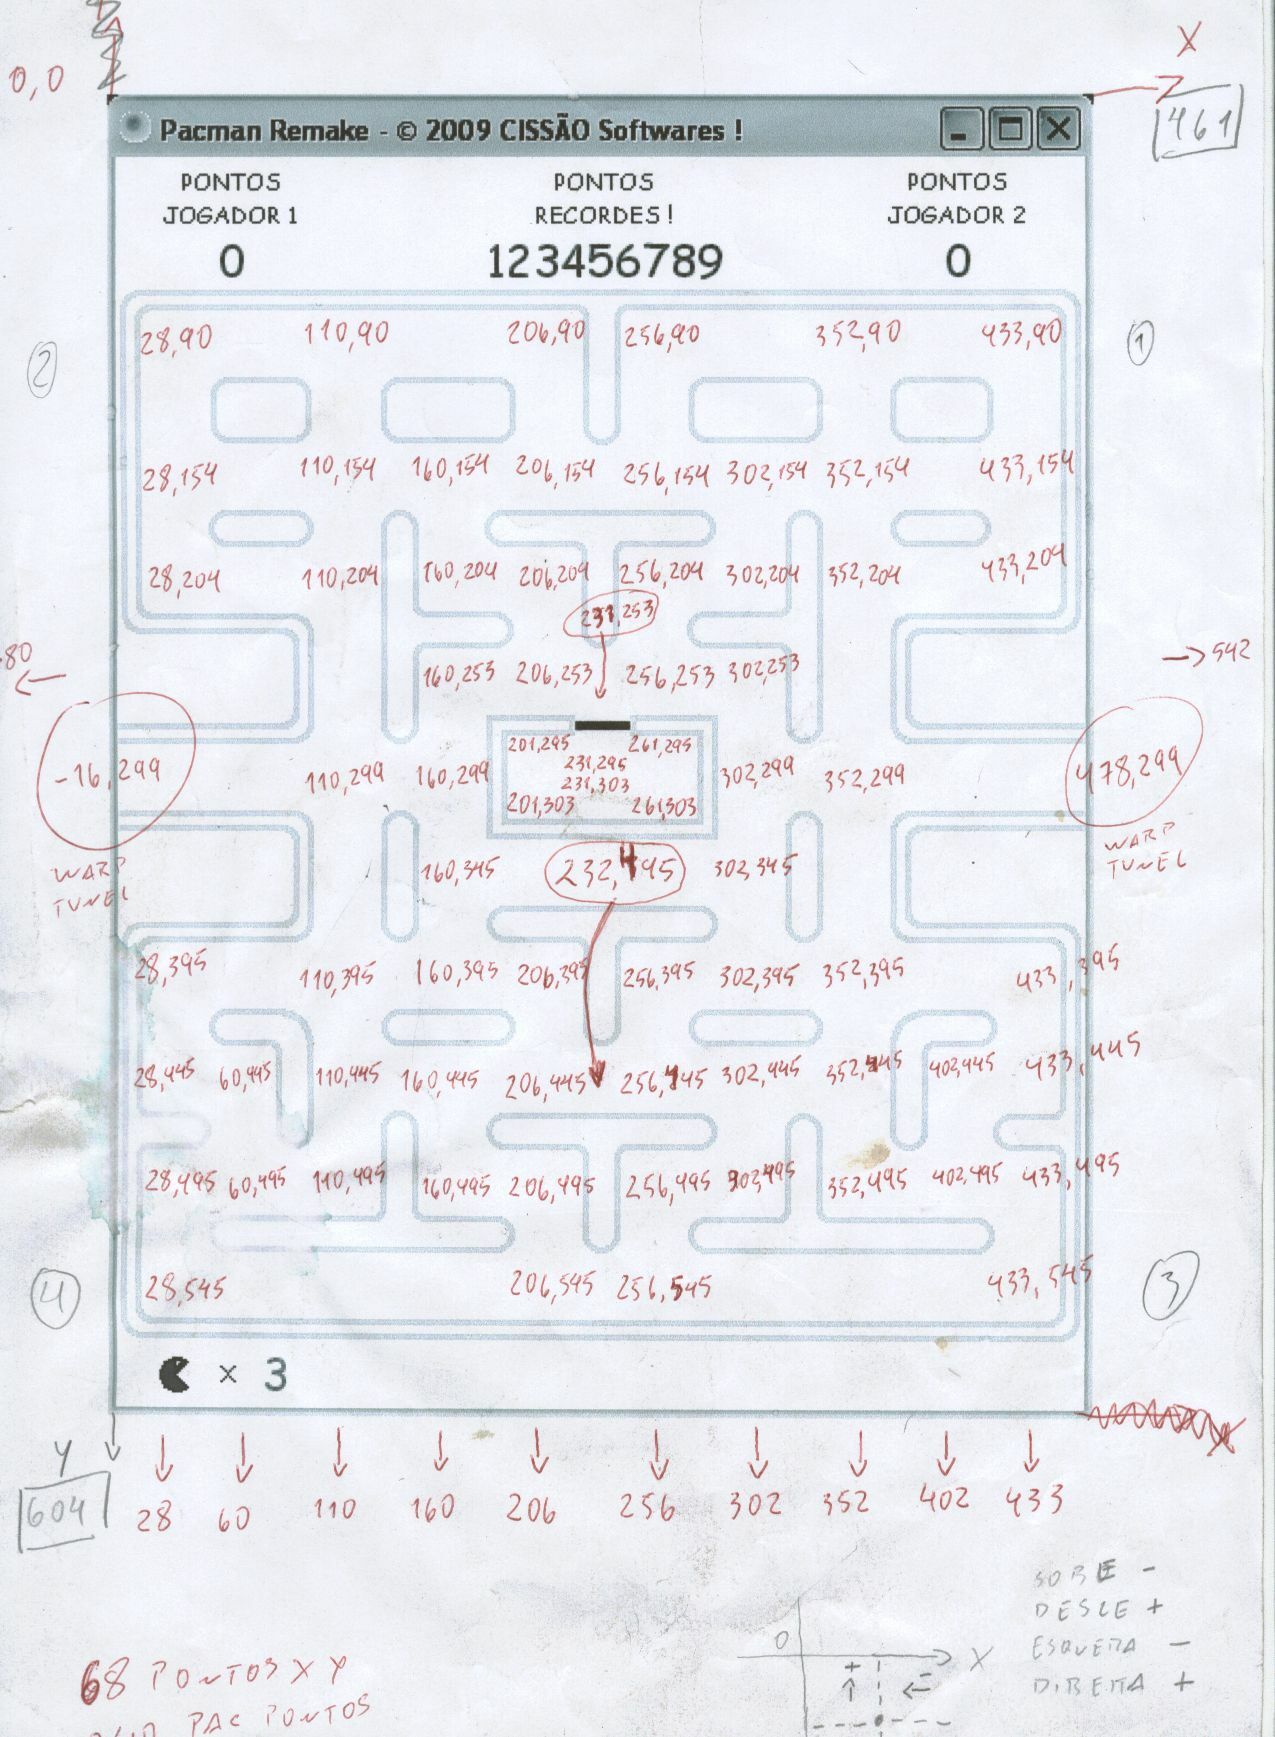 0,0
X
461
Pacman Remake - © 2009 CISSÃO Softwares !
PONTOS PONTOS PONTOS
JOGADOR 1 RECORDES ! JOGADOR 2
0 123456789 0
2 28,90 110,90 206,90 256,90 352,90 433,90 1
28,154 110,154 160,154 206,154 256,154 302,154 352,154 433,154
28,204 110,204 160,204 206,204 256,204 302,204 352,204 433,204
231,253
80 160,253 206,253 256,253 302,253 542
201,295 261,295
231,295
-16,299 110,299 160,299 231,303 302,299 352,299 478,299
201,303 261,303
WARP 160,345 232,495 302,345 WARP
TUNEL TUNEL
28,395 110,395 160,395 206,395 256,395 302,395 352,395 433,395
28,445 60,445 110,445 160,445 206,445 256,445 302,445 352,445 402,445 433,445
28,495 60,495 110,495 160,495 206,495 256,495 302,495 352,495 402,495 433,495
4 28,545 206,545 256,545 433,545 3
× 3
Y
604
28 60 110 160 206 256 302 352 402 433
SOBE -
DESCE +
ESQUERDA -
DIREITA +
0 X
+ -
68 PONTOS X Y
PAC PONTOS